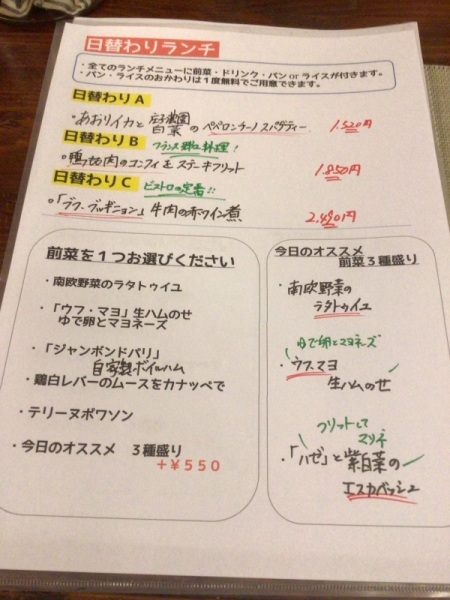 日替わりランチ
・全てのランチメニューに前菜・ドリンク・パン or ライスが付きます。
・パン・ライスのおかわりは1度無料でご用意できます。
日替わりA
・あおりイカと 農園
白菜のペペロンチーノ スパゲティー 1.520円
日替わりB フランス 料理!
・鴨 肉のコンフィ&ステーキフリット 1.850円
日替わりC ビストロの定番!!
・「ブフ・ブルギニョン」牛肉の赤ワイン煮 2.490円
前菜を1つお選びください
・南欧野菜のラタトゥイユ
・「ウフ・マヨ」生ハムのせ
ゆで卵とマヨネーズ
・「ジャンボンドパリ」
自家製ボイルハム
・鶏白レバーのムースをカナッペで
・テリーヌポワソン
・今日のオススメ 3種盛り
+¥550
今日のオススメ
前菜3種盛り
・南欧野菜の
ラタトゥイユ
ゆで卵とマヨネーズ
・ウフマヨ
生ハムのせ
フリットして
マリネ
・「ハゼ」と紫白菜の
エスカベッシュ